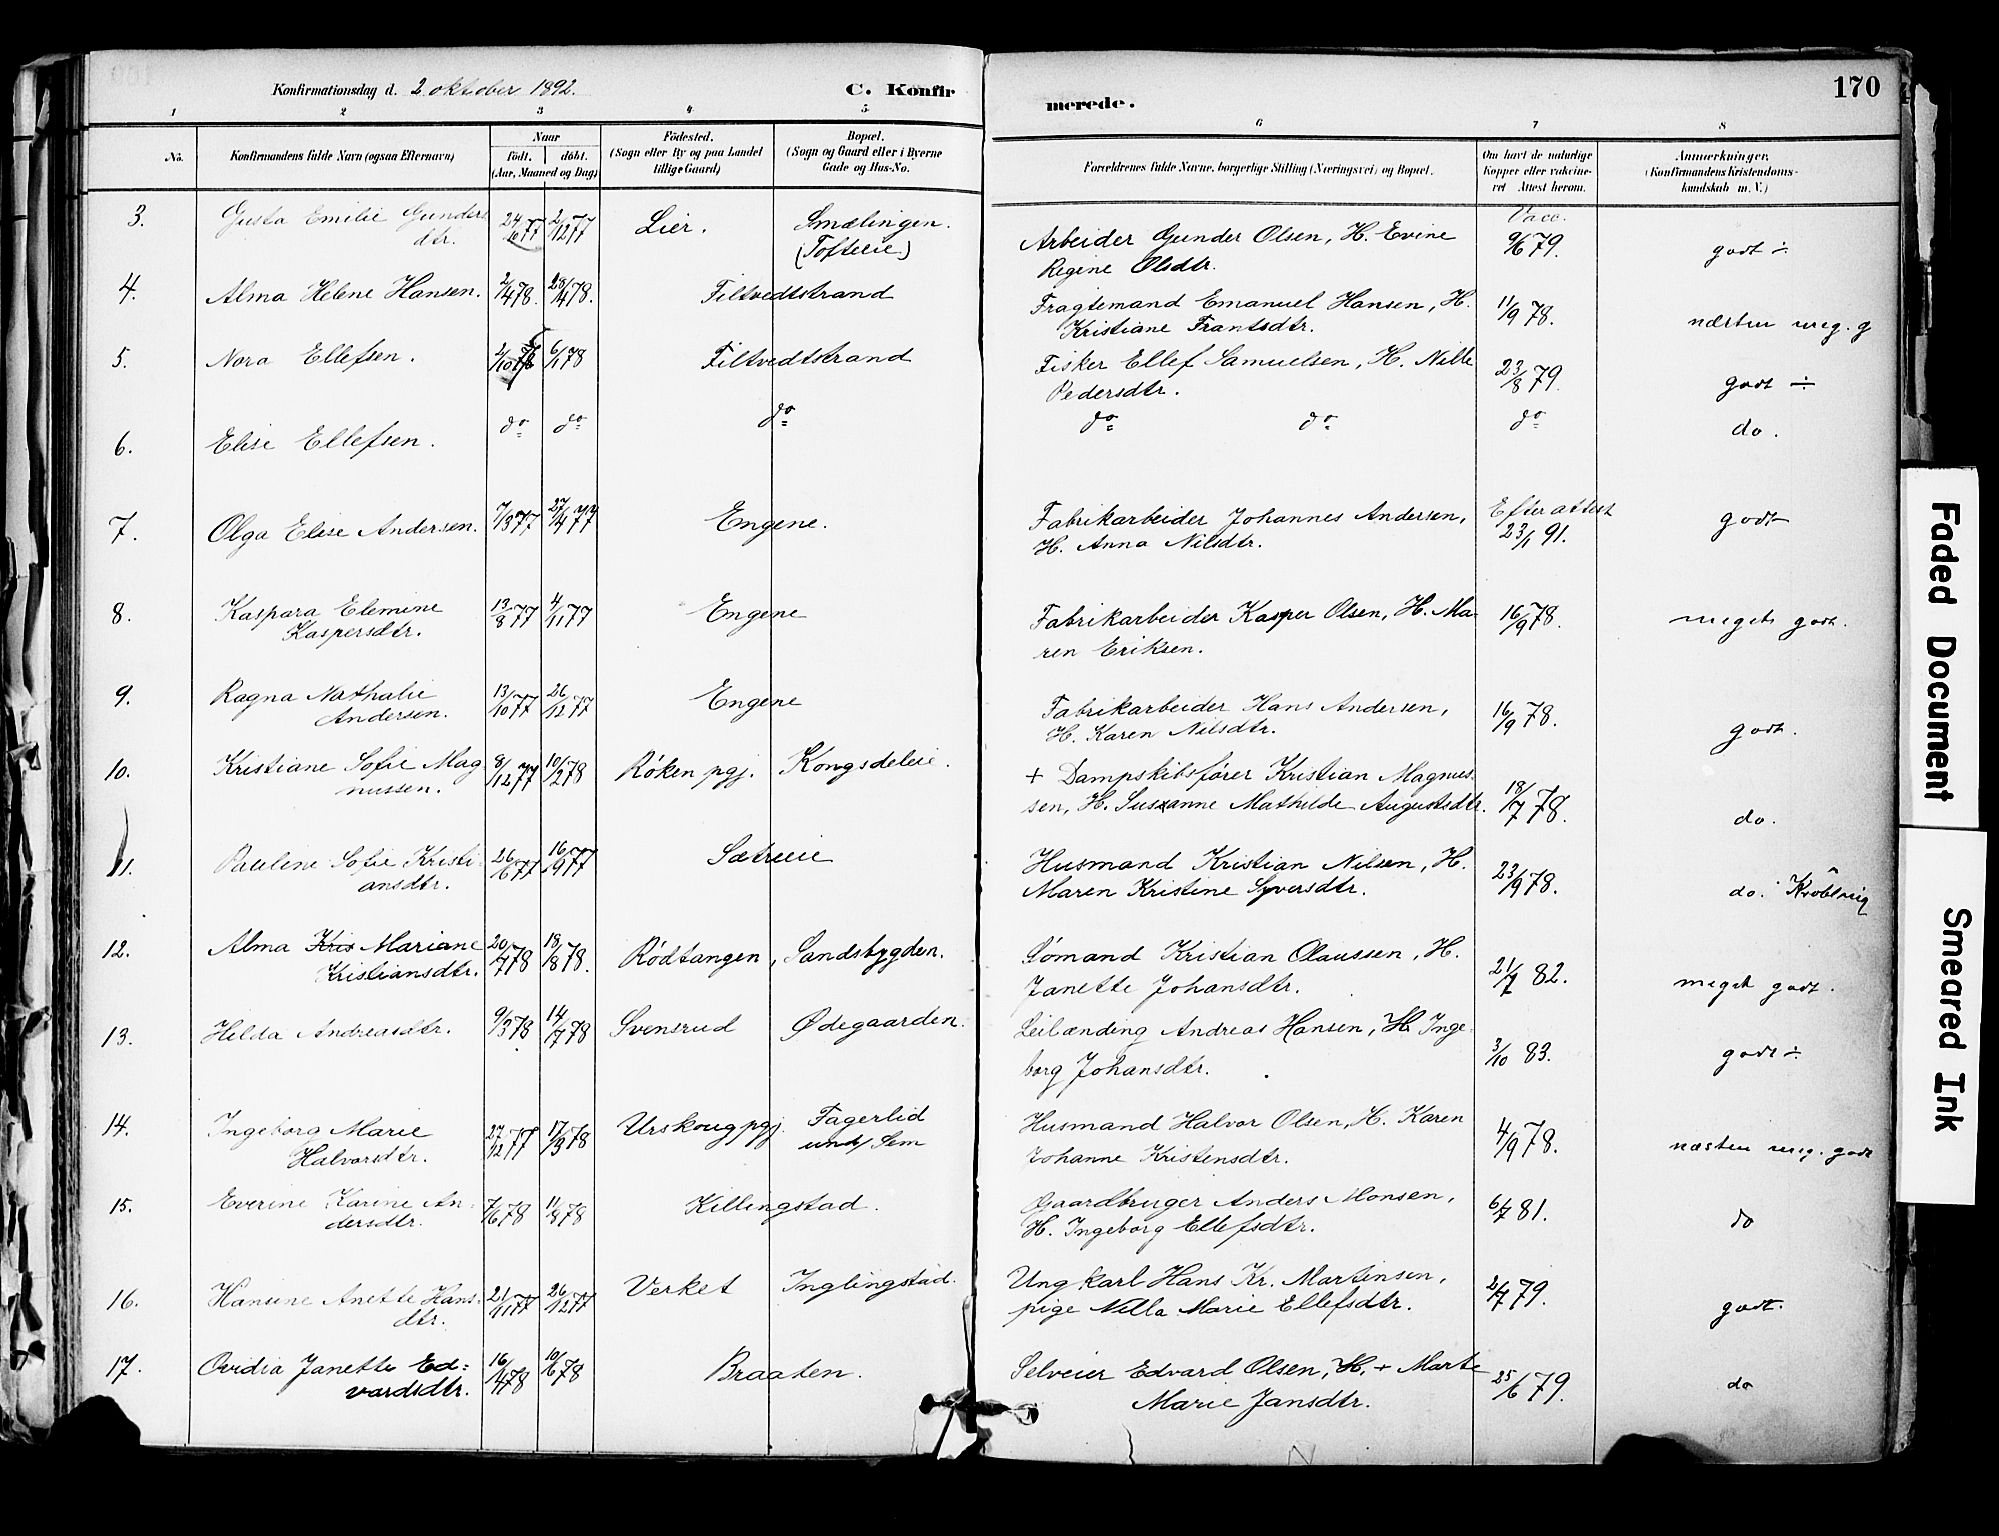 Konfirmationsdag d. 2 oktober 1892.
C. Konfir
merede.
170
1 2 3 4 5 6 7 8
No.
Konfirmandens fulde Navn (ogsaa Efternavn)
Naar
födt. döbt.
(Aar, Maaned og Dag)
Födested.
(Sogn eller By og paa Landet
tillige Gaard)
Bopæl.
(Sogn og Gaard eller i Byerne
Gade og Hus-No.
Forældrenes fulde Navne, borgerlige Stilling (Næringsvei) og Bopæl.
Om havt de naturlige
Kopper eller vakcine-
ret Attest herom.
Anmærkninger.
(Konfirmandens Kristendoms-
kundskab m. V.)
3. Gusta Emilie Gunders
dtr.
24/10 77 2/12 77
Lier.
Smælingen.
(Tofteeie)
Arbeider Gunder Olsen, H. Evine
Regine Olsdtr.
Vacc.
9/6 79.
godt ÷
4. Alma Helene Hansen.
2/4 78. 28/4 78.
Filtvedtstrand
Fragtemand Emanuel Hansen, H.
Kristiane Frantsdtr.
11/9 78.
næsten meg. g
5. Nora Ellefsen.
6/1 78
Filtvedtstrand
Fisker Ellef Samuelsen, H. Nille
Pedersdtr.
23/8 79.
godt ÷
6. Elise Ellefsen.
do do do do do do
do.
7. Olga Elise Andersen.
7/3 77 27/4 77
Engene.
Fabrikarbeider Johannes Andersen,
H. Anna Nilsdtr.
Efter attest
23/1 91.
godt
8. Kaspara Elemine
Kaspersdtr.
13/8 77 4/11 77
Engene
Fabrikarbeider Kasper Olsen, H. Ma-
ren Eriksen.
16/9 78.
meget godt.
9. Ragna Nathalie
Andersen.
13/10 77 26/12 77
Engene
Fabrikarbeider Hans Andersen,
H. Karen Nilsdtr.
16/9 78.
godt.
10. Kristiane Sofie Mag
nussen.
8/12 77 10/2 78
Røken pgj. Kongsdeleie.
+ Dampskibsfører Kristian Magnus-
sen, H. Susanne Mathilde Augustsdtr.
18/7 78.
do.
11. Pauline Sofie Kristi-
ansdtr.
26/6 77 16/9 77
Sætreeie
Husmand Kristian Nilsen, H.
Maren Kristine Syversdtr.
23/9 78.
do.
12. Alma Kris Mariane
Kristiansdtr.
20/7 78 18/8 78.
Rödtangen, Sandsbygden.
Sømand Kristian Olaussen, H.
Janette Johansdtr.
21/7 82.
meget godt.
13. Hilda Andreasdtr.
9/3 78 14/7 78
Svensrud Ødegaarden.
Leilænding Andreas Hansen, H. Inge-
borg Johansdtr.
3/10 83.
godt ÷
14. Ingeborg Marie
Halvorsdtr.
27/12 77 17/3 78
Urskoug pgj. Fagerlid
und/ Sem
Husmand Halvor Olsen, H. Karen
Johanne Kristensdtr.
4/9 78.
næsten meg. godt
15. Everine Karine An-
dersdtr.
7/6 78 11/8 78
Killingstad.
Gaardbruger Anders Monsen,
H. Ingeborg Ellefsdtr.
6/7 81.
do
16. Hansine Anette Hans-
dtr.
21/11 77 26/12 77
Verket Inglingstad.
Ungkarl Hans Kr. Martinsen,
pige Nilla Marie Ellefsdtr.
2/7 79.
godt.
17. Ovidia Janette Ed=
vardsdtr.
16/4 78 10/6 78
Braaten.
Selveier Edvard Olsen, H. + Marte
Marie Jansdtr.
25/6 79.
do
Faded Document
Smeared Ink